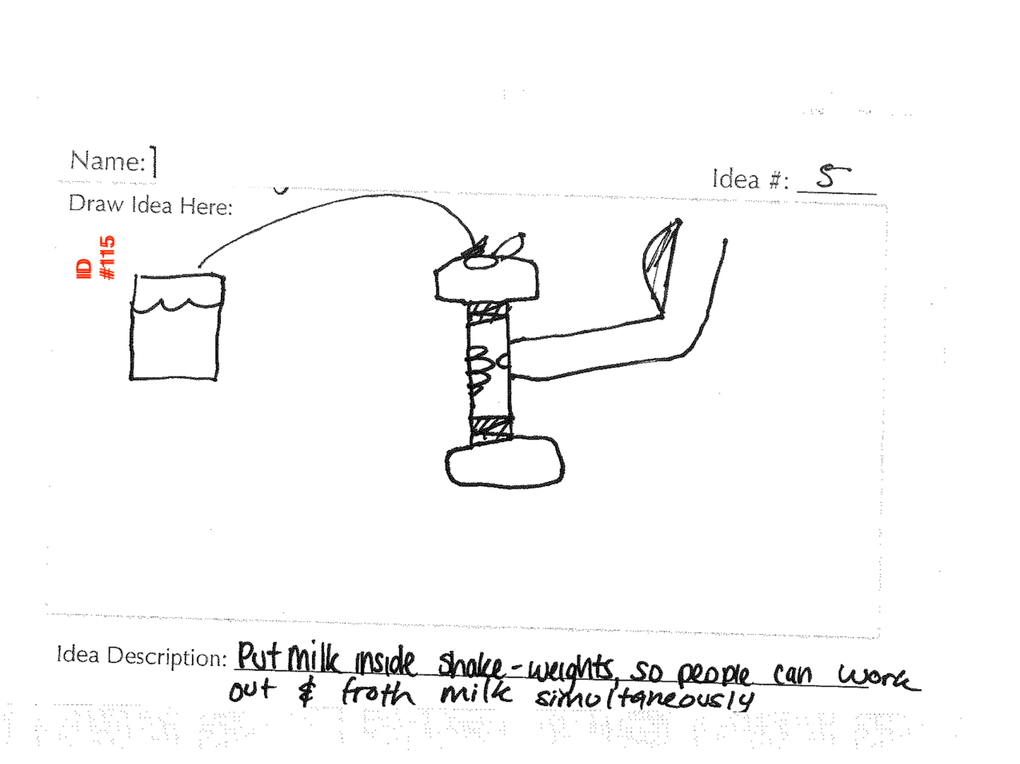 Name: 1
Idea #: 5
Draw Idea Here:
IID
#115
Idea Description: Put milk inside shake-weights, so people can work
out & froth milk simultaneously